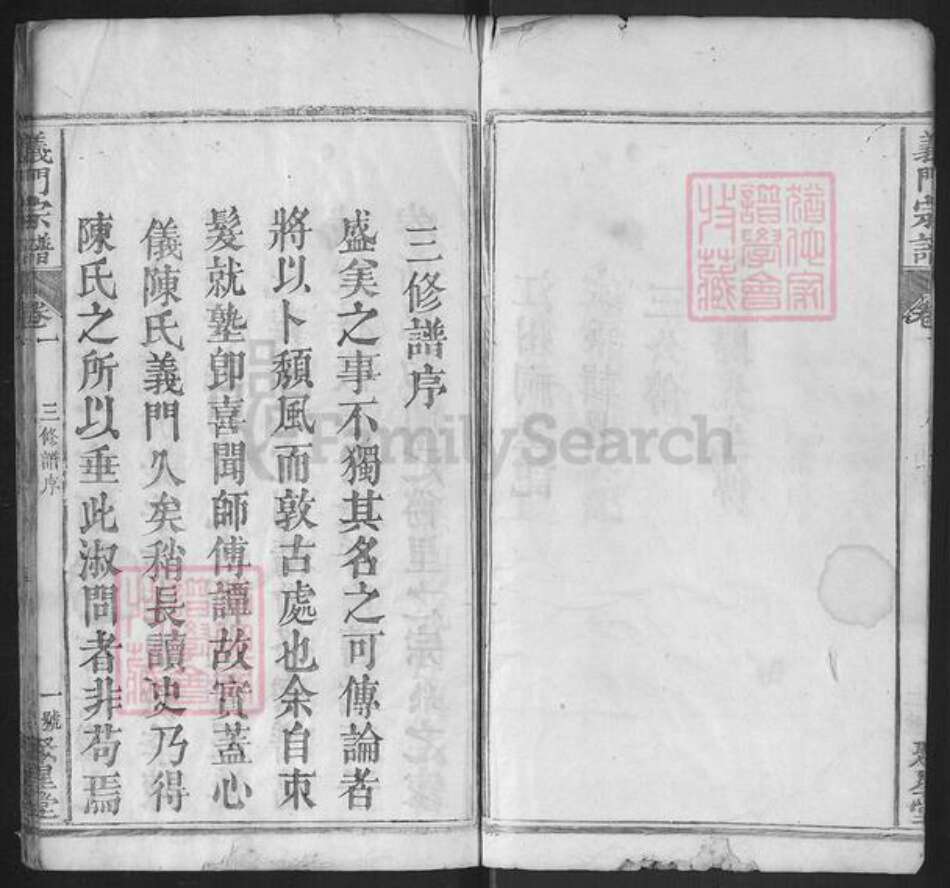 三修譜序
盛美之事不獨其名之可傳論者
將以卜頽風而敦古處也余自束
髮就塾即喜聞師傅譚故實蓋心
儀陳氏義門久矣稍長讀史乃得
陳氏之所以垂此淑問者非苟焉
義門宗譜
卷一
三修譜序
一號
聚星堂
義門宗譜
卷一
聚星堂
譜學會
收藏
FamilySearch